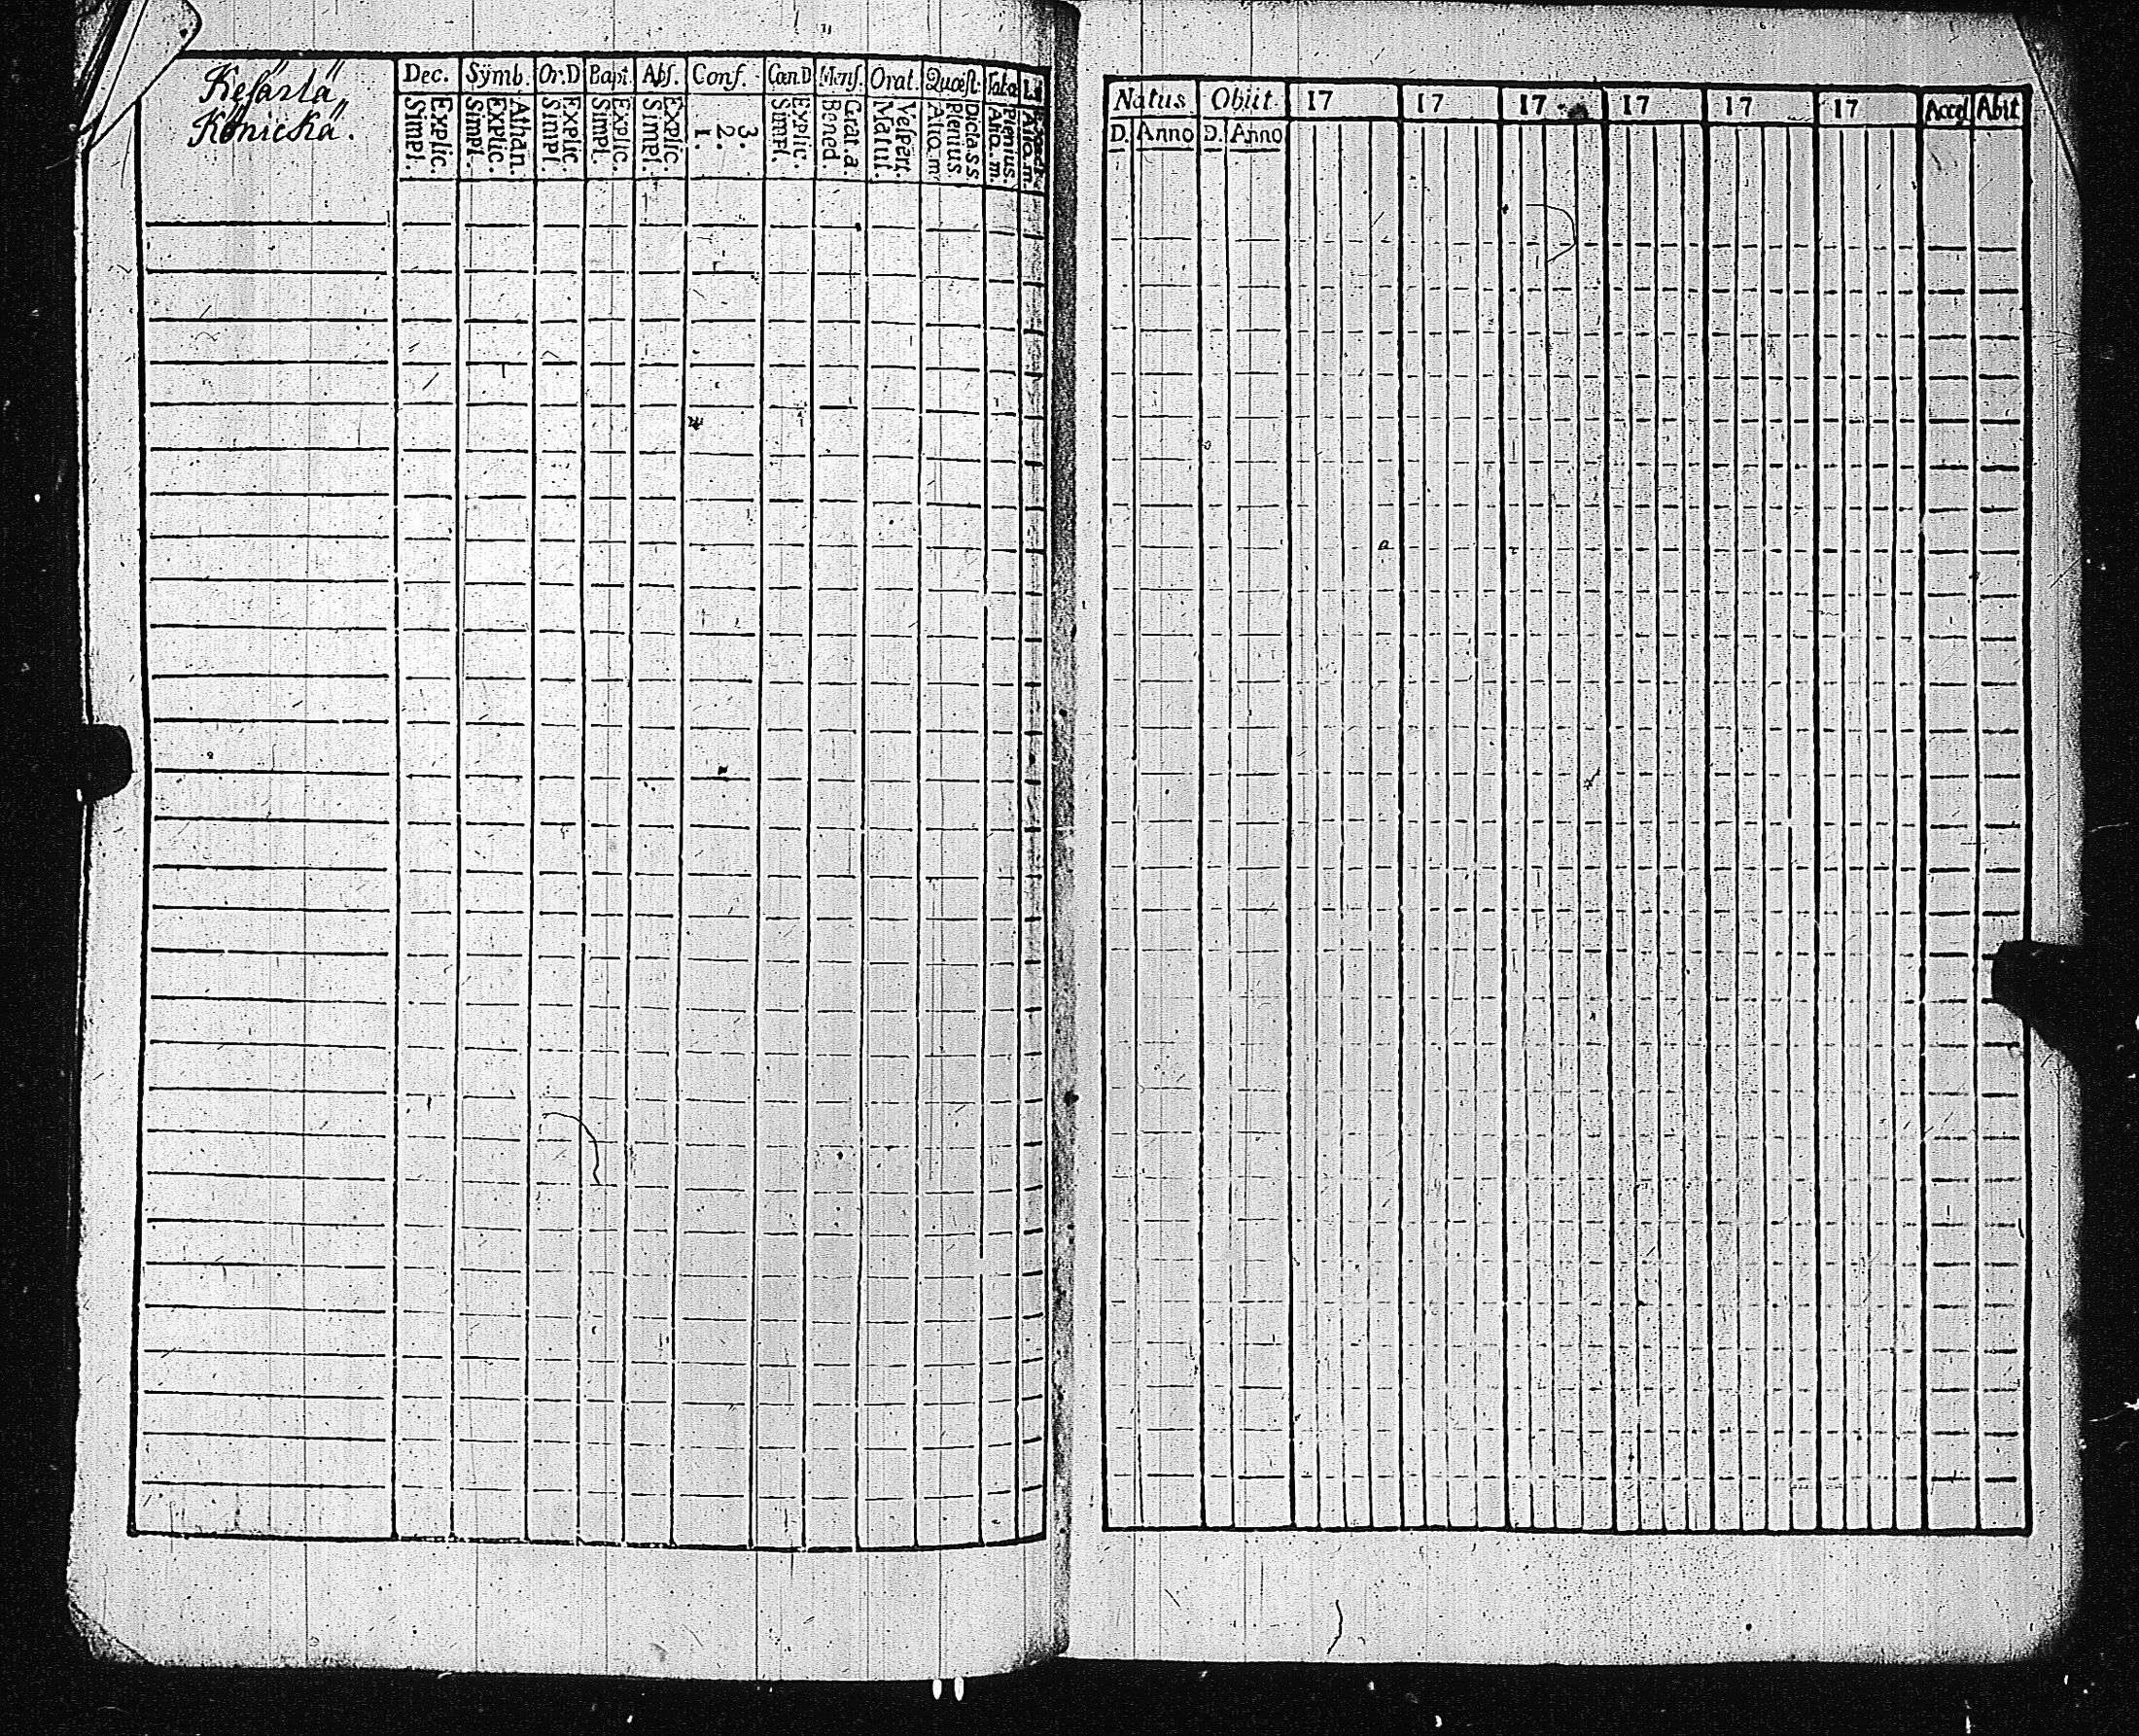 Kesärlä
Könickä.
Dec. Sÿmb. Or.D Bapt. Abſ. Conf. Cœn.D Menſ. Orat. Quœſt.
Explic. Simpl.
Athan. Explic. Simpl.
Explic. Simpl.
Explic. Simpl.
Explic. Simpl.
3. 2. 1.
Explic. Simpl.
Grat.a. Bened
Veſpert. Matut.
Dicta.s.s Plenius Aliq.m
Plenius Aliq.m.
Aliq.m.
Natus Obiit. 17 17 17 17 17 17 Acceſ Abit
D. Anno D. Anno